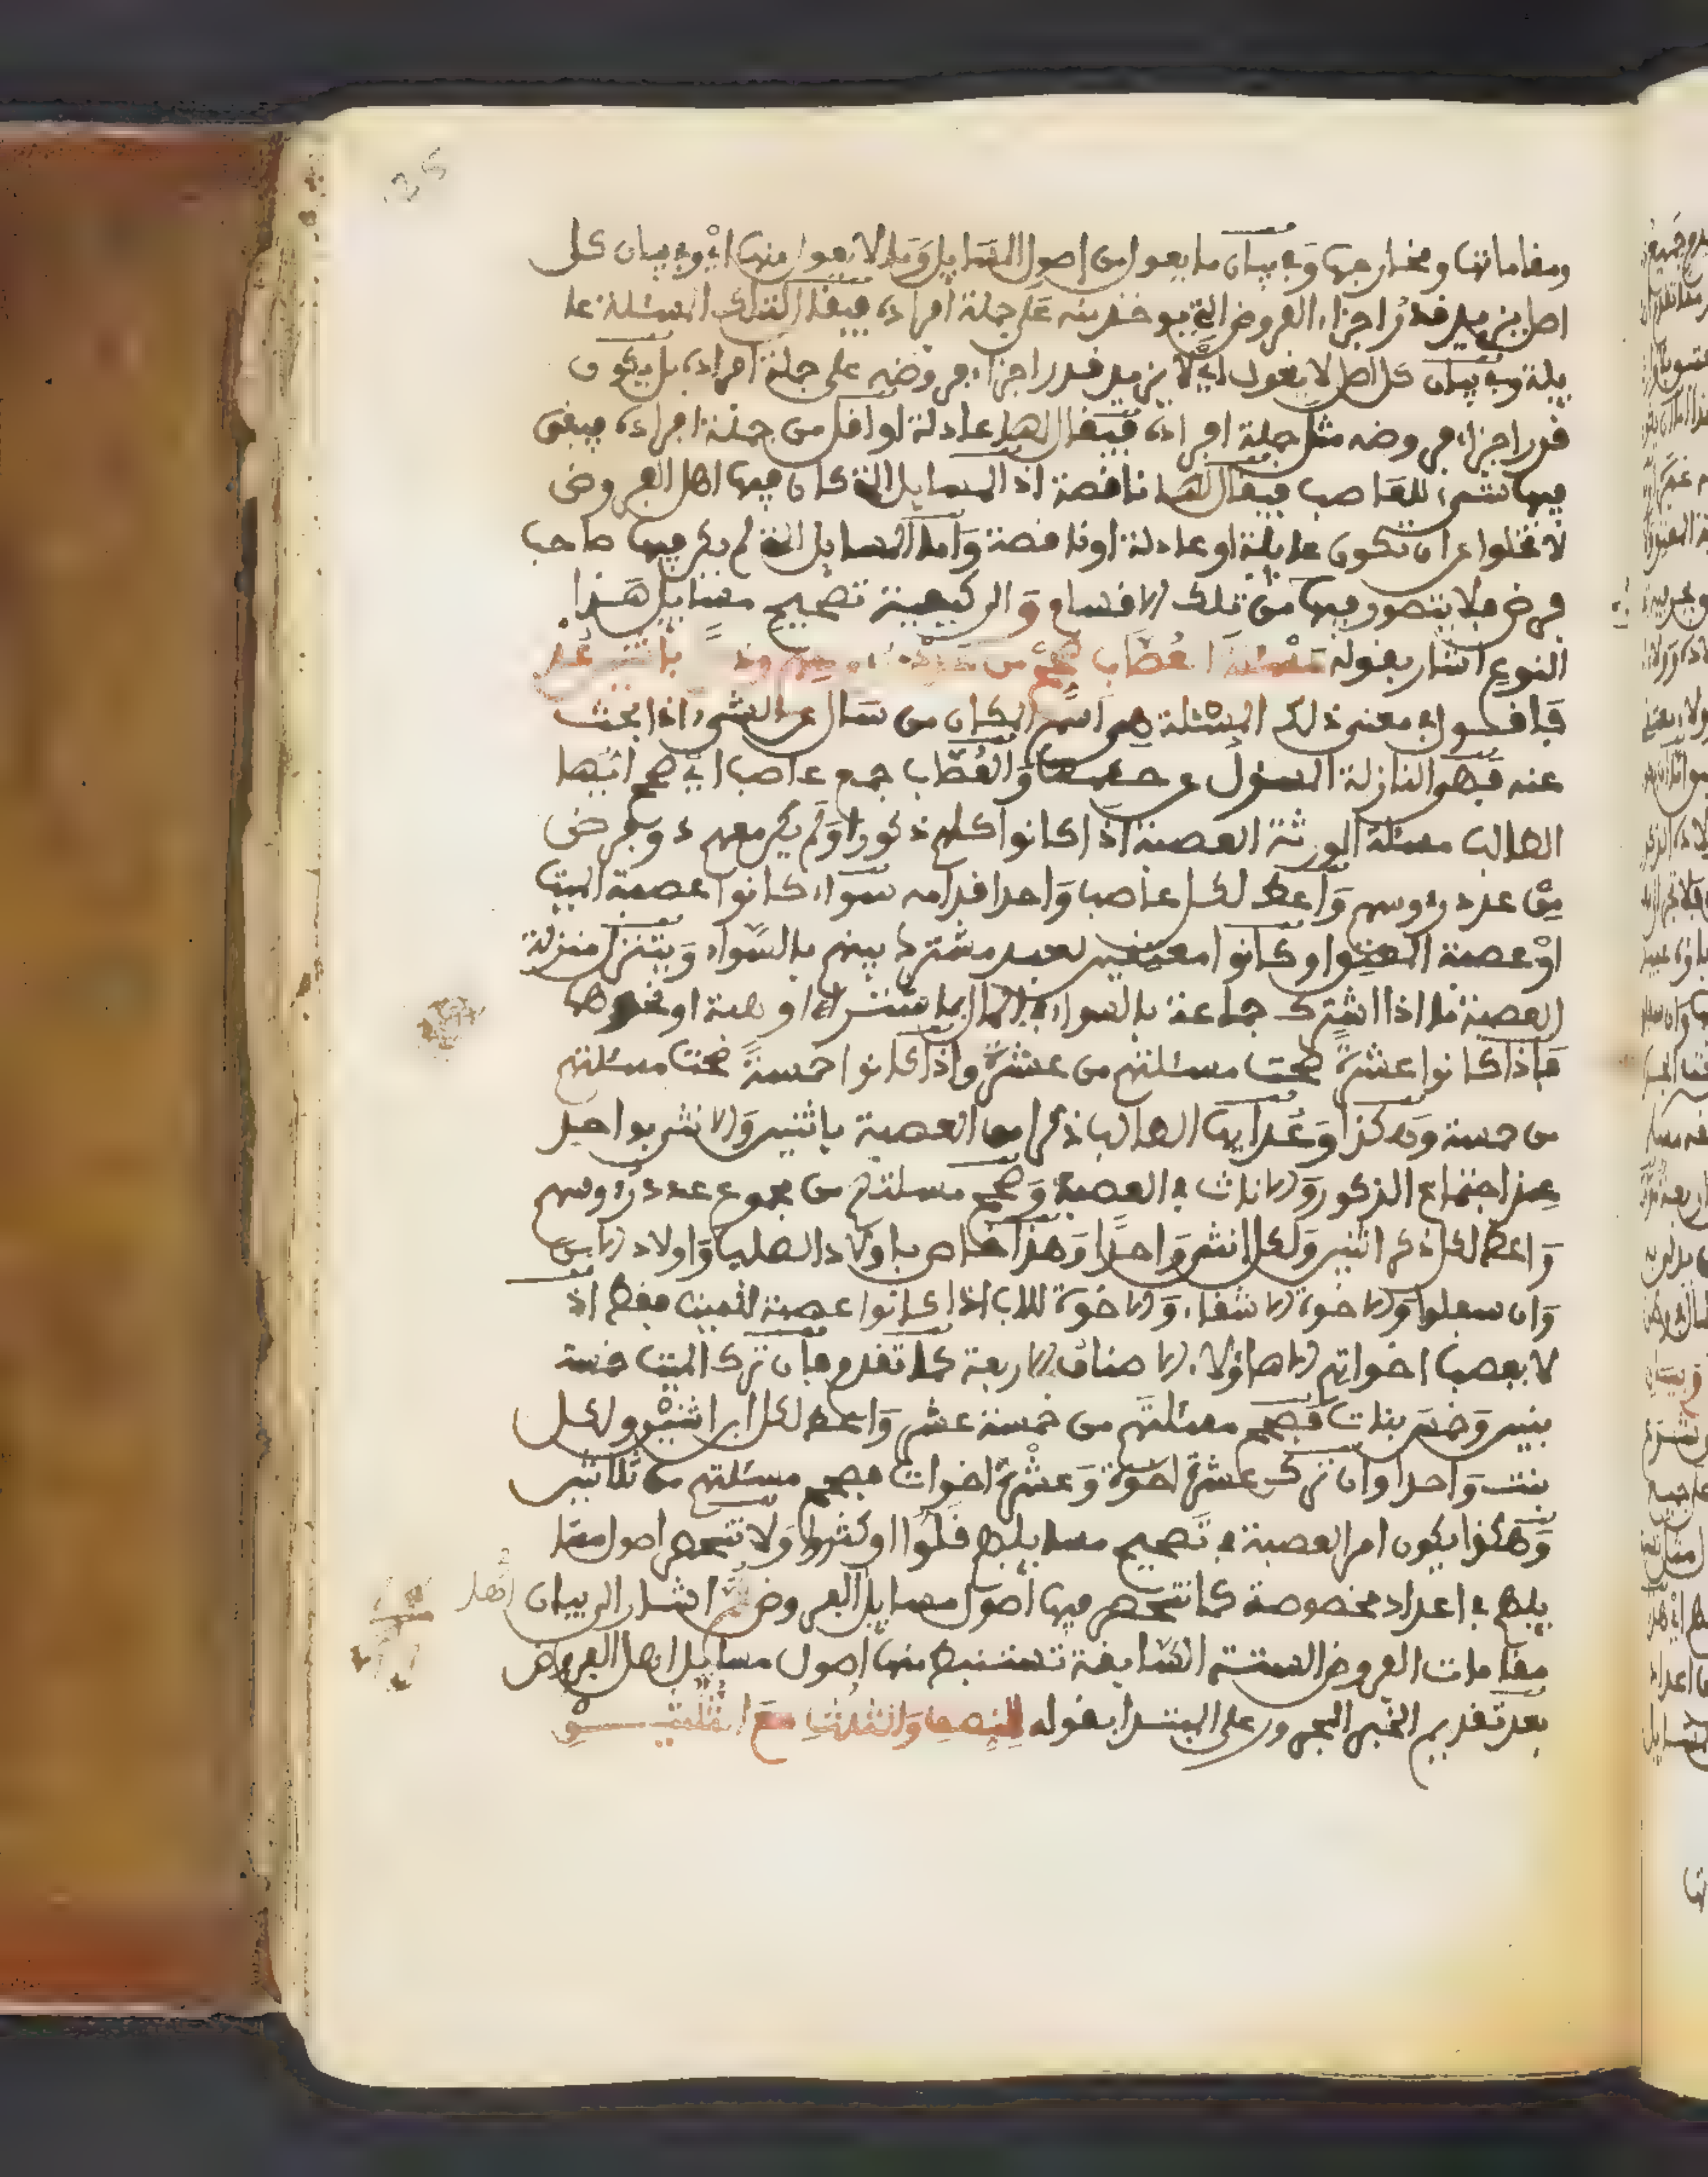 ومقاماتها ومخارجها وفي بيان ما يعول من اصول المسايل وما لا يعول منها اي وفي بيان كل
اصل يزيد قدر اجزاء الفروض التي يوخذ منه على جملة افراده فيقال لتلك المسئلة عا
يلة وفي بيان كل اصل لا يعول اي لا يزيد قدر اجزاء فروضه على جملة افراده بل يكون
قدر اجزاء فروضه مثل جملة افراده فيقال لها عادلة او اقل من جملة افراده فيبقى
فيها شيء للعاصب فيقال لها ناقصة اذ المسايل التي كان فيها اهل الفروض
لا تخلوا عن ان تكون عايلة او عادلة او ناقصة واما المسايل التي لم يكن فيها صاحب
فرض فلا يتصور فيها من تلك الاقسام والى كيفية تصحيح مسايل هذا
النوع اشار بقوله مسئلة العصاب صحح من باثنين عد
فاقول في معنى ذلك المسئلة هي اسم المكان من سال عن الشيء اذا بحث
عنه فهو النازلة المسول عن حكمها والعصاب جمع عاصب اي صحح ايها
الطالب مسئلة الورثة العصبة اذا كانوا كلهم ذكورا ولم يكن معهم ذو فرض
من عدد رءوسهم واعط لكل عاصب واحدا قدامه سواء كانوا عصبة الميت
او عصبة المعتق او كانوا معتقين لعبد مشترك بينهم بالسواء ويتنزل منزلة
العصبة ما اذا اشترك جماعة بالسواء في المال بالشراء او هبة او نحوها
فاذا كانوا عشرة صحت مسئلتهم من عشرة واذا كانوا خمسة صحت مسئلتهم
من خمسة وهكذا وعد ايها الطالب ذكرا من العصبة باثنين والانثى بواحد
عند اجتماع الذكور والاناث في العصبة وصحح مسئلتهم من مجموع عدد رءوسهم
واعط لكل ذكر اثنين ولكل انثى واحدا وهذا خاص باولاد الصلب واولاد الابن
وان سفلوا والاخوة الاشقاء والاخوة للاب اذا كانوا عصبة للميت فقط اذ
لا يعصب اخواتهم الا هاؤلاء الاصناف الاربعة كما تقدم فان ترك الميت خمسة
بنين وخمس بنات فصحح مسئلتهم من خمسة عشر واعط لكل ابن اثنين ولكل
بنت واحدا وان ترك عشرة اخوة وعشرة اخوات فصحح مسئلتهم من ثلاثين
وهكذا يكون امر العصبة في تصحيح مسايلهم قلوا او كثروا ولا تنحصر اصول مسا
يلهم في اعداد مخصوصة كما تنحصر فيها اصول مسايل الفروض ثم اشار الى بيان اهل
مقامات الفروض الستة السابقة تستنبط منها اصول مسايل اهل الفروض
بعد تقديم الخبر المجرور على المبتدا بقوله للنصف والثلث مع الثلثين